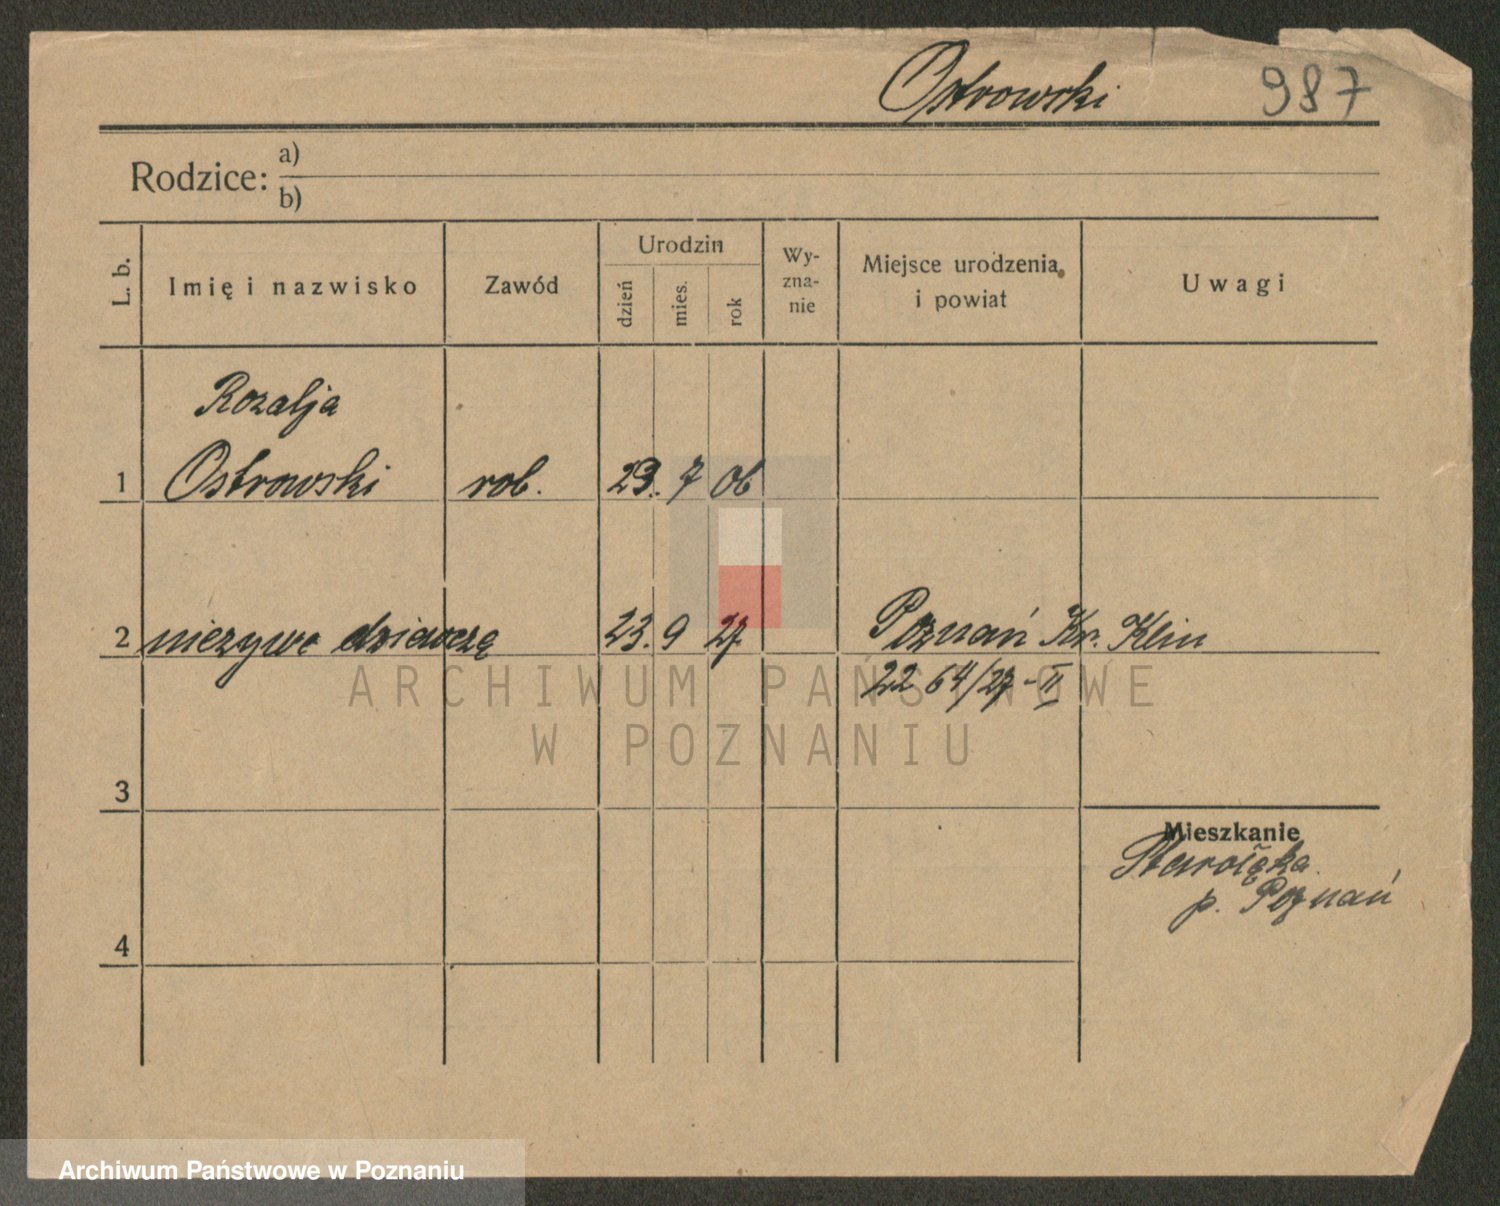 Ostrowski 987
Rodzice: a)
b)
L. b. Imię i nazwisko Zawód Urodzin dzień mies. rok Wy-zna-nie Miejsce urodzenia i powiat Uwagi
Rozalja
1 Ostrowski rob. 23. 7 06
2 nieżywe dziewczę 23. 9 27 Poznań Kr. Klin
22 64/27-II
3
Mieszkanie
Starołęka
p. Poznań
4
ARCHIWUM PAŃSTWOWE
W POZNANIU
Archiwum Państwowe w Poznaniu